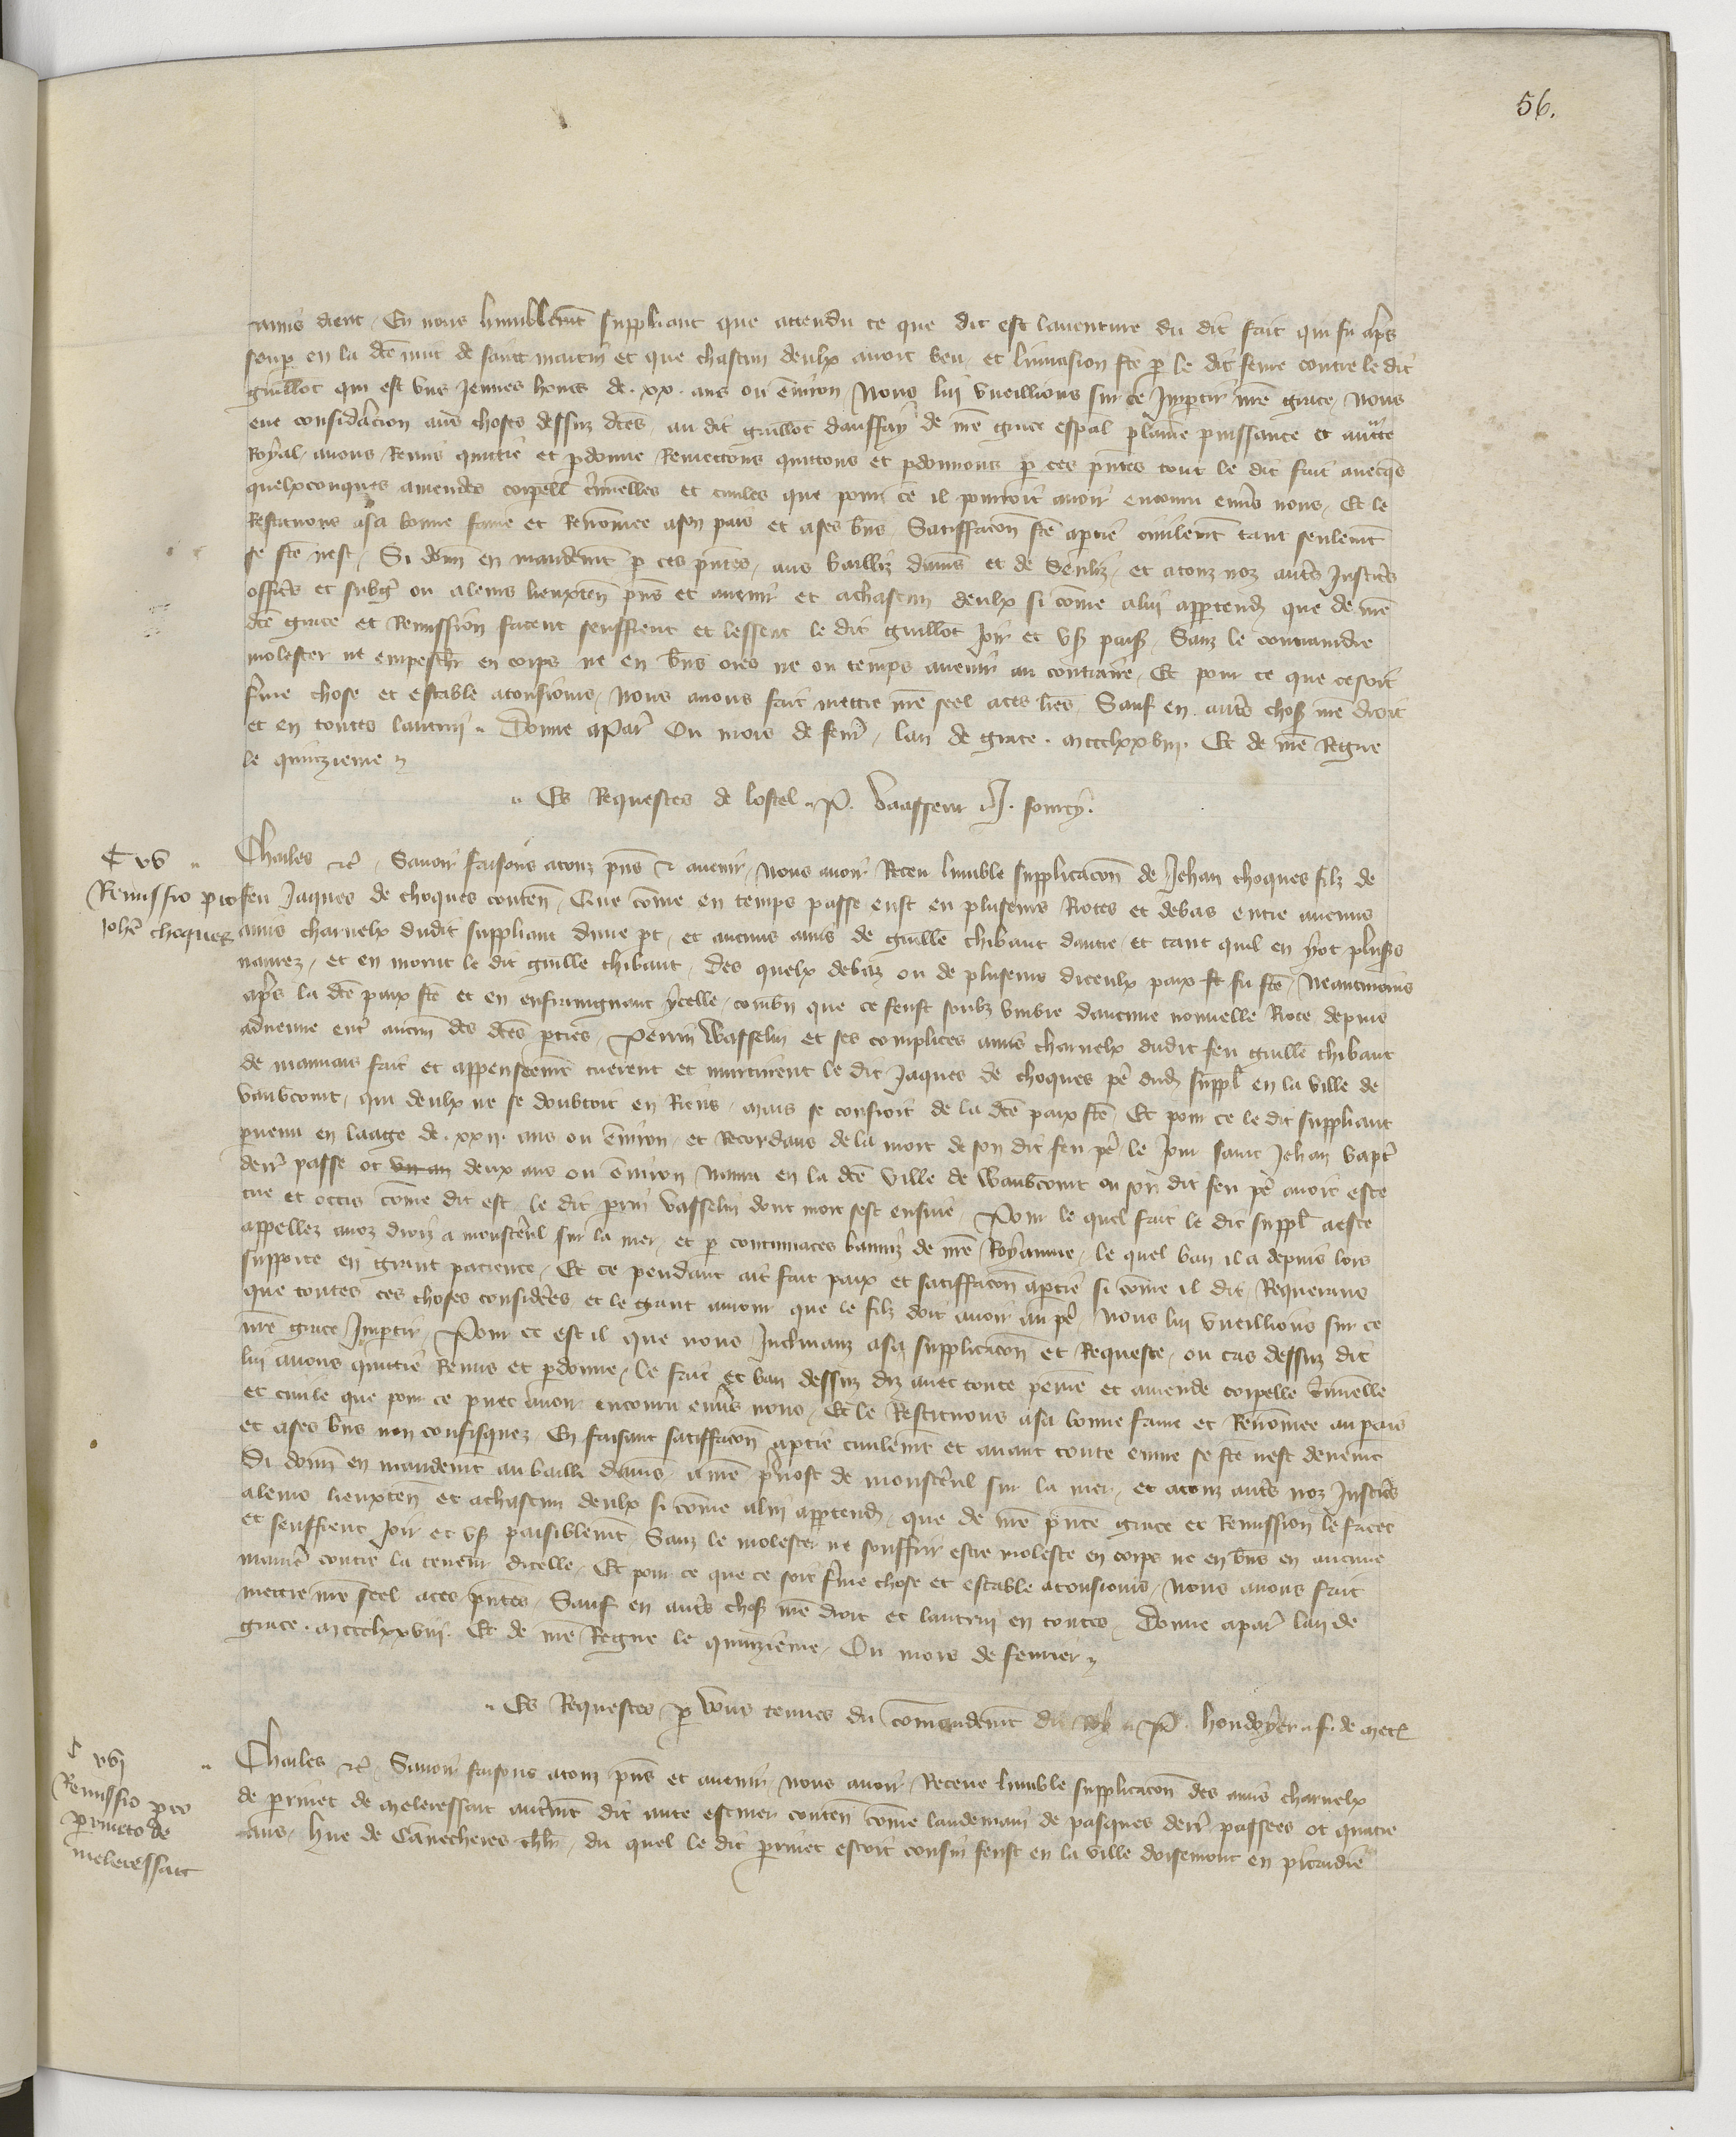 56.
amis dient, En nous humblemt suppliant que attendu ce que dit est lauenture du dit fait qui fu apres
soup en la dce nuit de saint martin et que chascun deulx auoit beu, et linuasion fte p le dit feme contre le dit
guillot qui est vns jeunes homs de .xx. ans ou enuiron, Nous lui vueillions sur ce Impartir nre grace, Nous
eue consideracion aus choses dessuz dces, au dit guillot dauffay de nre grace espal plaine puissance et aucte
Royal, auons Remis quittie et pdonne Remettons quittons et pdonnons p ces pntes tout le dit fait auecqs
quelxconques amendes corpell criminelles et ciuiles que pour ce il pourroit auoir encouru enuers nous, Et le
Restituons asa bonne fame et Renommee ason pais et ases bns, Satisfacon fte aptie ciuilemt tant seulemt
se fte nest, Si donn en mandemt p ces pntes, aus bailliz damis et de Senliz, et atouz noz autres Justiciers
officiers et subgz ou aleurs lieuxten pns et auenir et achascun deulx si come alui apptendra, que de nre
dce grace et Remission facent seuffrent et lessent le dit guillot Joir et vser paisiblemt, Sanz le contraindre
molester ne empescher en corps ne en bns ores ne ou temps auenir au contraire, Et pour ce que ce soit
ferme chose et estable atousiours, Nous auons fait mettre nre seel aces lres, Sauf en autres choses nre droit
et en toutes lautrui. Donne aPar Ou mois de feur, lan de grace .mccclxxviij. Et de nre Regne
le quinzieme
Es Requestes de lostel .P. Vaasseur .J. fourcy.
C v9
Remissio pro
johe choques
Charles &c, Sauoir faisons atouz pns & auenir, Nous auoir Receu lumble supplicacon de Jehan choques filz de
feu Jaques de choques conten, Que come en temps passe eust eu pluseurs Riotes et debas entre aucuns
amis charnelx dudit suppliant dune pt, et aucuns amis de guille thibaut dautre, et tant quil en yot plusrs
naurez, et en morut le dit guille thibaut, des quelx debaz ou de pluseurs diceulx paix fu fte, Neantmoins
apres la dce paix fte et en enfraingnant ycelle, combn que ce feust soubz vmbre daucune nouuelle Riote depuis
aduenue entre aucun des dces pties, Perrin Wasselin et ses complices amis charnelx dudit feu guille thibaut
de mauuais fait et appenseemt tuerent et murtrirent le dit Jaques de choques pe dud suppl en la ville de
vaubcourt, qui deulx ne se doubtoit en Riens, mais se confioit de la dce paix fte Et pour ce le dit suppliant
puenu en laage de .xxij. ans ou enuiron, et Recordans de la mort de son dit feu pe, le Jour saint Jehan bapt
derr passe ot vn an deux ans ou enuiron naura en la dce ville de Waubcourt ou son dit feu pe auoit este
tue et occis come dit est le dit perrin vasselin dont mort sest ensuie, Pour le quel fait le dit suppl aeste
appellez anoz droiz a monsterul sur la mer, et p contumaces banniz de nre Royaume, le quel ban il a depuis lors
supporte en grant pacience, Et ce pendant ait fait paix et satisfacon aptie si come il dit, Requerant
que toutes ces choses considerees et le grant amour que le filz doit auoir au pe, Nous lui vueillions sur ce
nre grace Impartir, Pour ce est il que nous Inclinanz asa supplicacon et Requeste, ou cas dessuz dit
lui auons quittie Remis et pdonne, le fait et ban dessuz diz auec toute peine et amende corpelle criminelle
et ciuile que pour ce puet auoir encouru enuers nous, Et le Restituons asa bonne fame et Renommee au pais
et ases bns non confisquez, En faisant satisfacon aptie ciuilemt et auant toute euure se fte nest deuemt
Si donn en mandemt au bailli damis, anre preuost de monsterul sur la mer, et atouz autres noz Justiciers
aleurs lieuxten et achascun deulx si come alui apptendra, que de nre pnte grace et Remission le facet
et seuffrent Joir et vser paisiblemt, Sanz le molester ne souffrir estre moleste en corps ne en bns en aucune
maniere contre la teneur dicelle, Et pour ce que ce soit ferme chose et estable atousiours, Nous auons fait
mettre nre seel aces pntes, Sauf en autres choses nre droit et lautrui en toutes, Donne apar lan de
grace .mccclxxviij. Et de nre Regne le quinzieme, Ou mois de feurier
Es Requestes p vous tenues du comandemt du Roy P. houdoyer. f. de metz
C v9j
Remissio pro
perrineto de
meleressart
Charles &c, Sauoir faisons atouz pns et auenir nous auoir Receue lumble supplicacon des amis charnelx
de perrinet de meleressart autremt dit ante escuier conten come landemain de pasques derr passees ot quatre
ans, hue de Canecheres chlr, du quel le dit perrinet estoit cousin feust en la ville doisemont en picardie